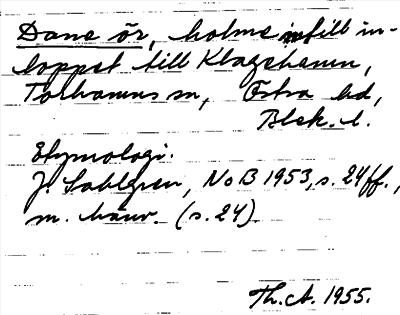 Dane ör, holme infill in-
loppet till Klagshamn,
Torhamns sn, Östra hd,
Blek. l.
Etymologi:
J. Sahlgren, NoB 1953, s. 24ff.,
m. hänv. (s. 24)
Th. A. 1955.